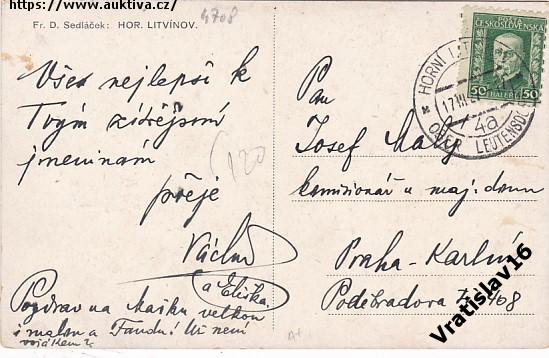 https://www.auktiva.cz/
Fr. D. Sedláček: HOR. LITVÍNOV.
4708
Vše nejlepší k
Tvým zítřejším
jmeninám
přeje
Václav
a Eliška.
Pozdrav na Mařku velkou
i malou a Fandu! Už není
vojákem?
(120
A+
POŠTA
ČESKOSLOVENSKÁ
50 HALÉŘŮ 50
HORNÍ
17.III.
4a
OBER LEUTENSDORF
Pan
Josef Malý
komisionář a maj. domu
Praha-Karlín
Poděbradova 408
Vratislav16